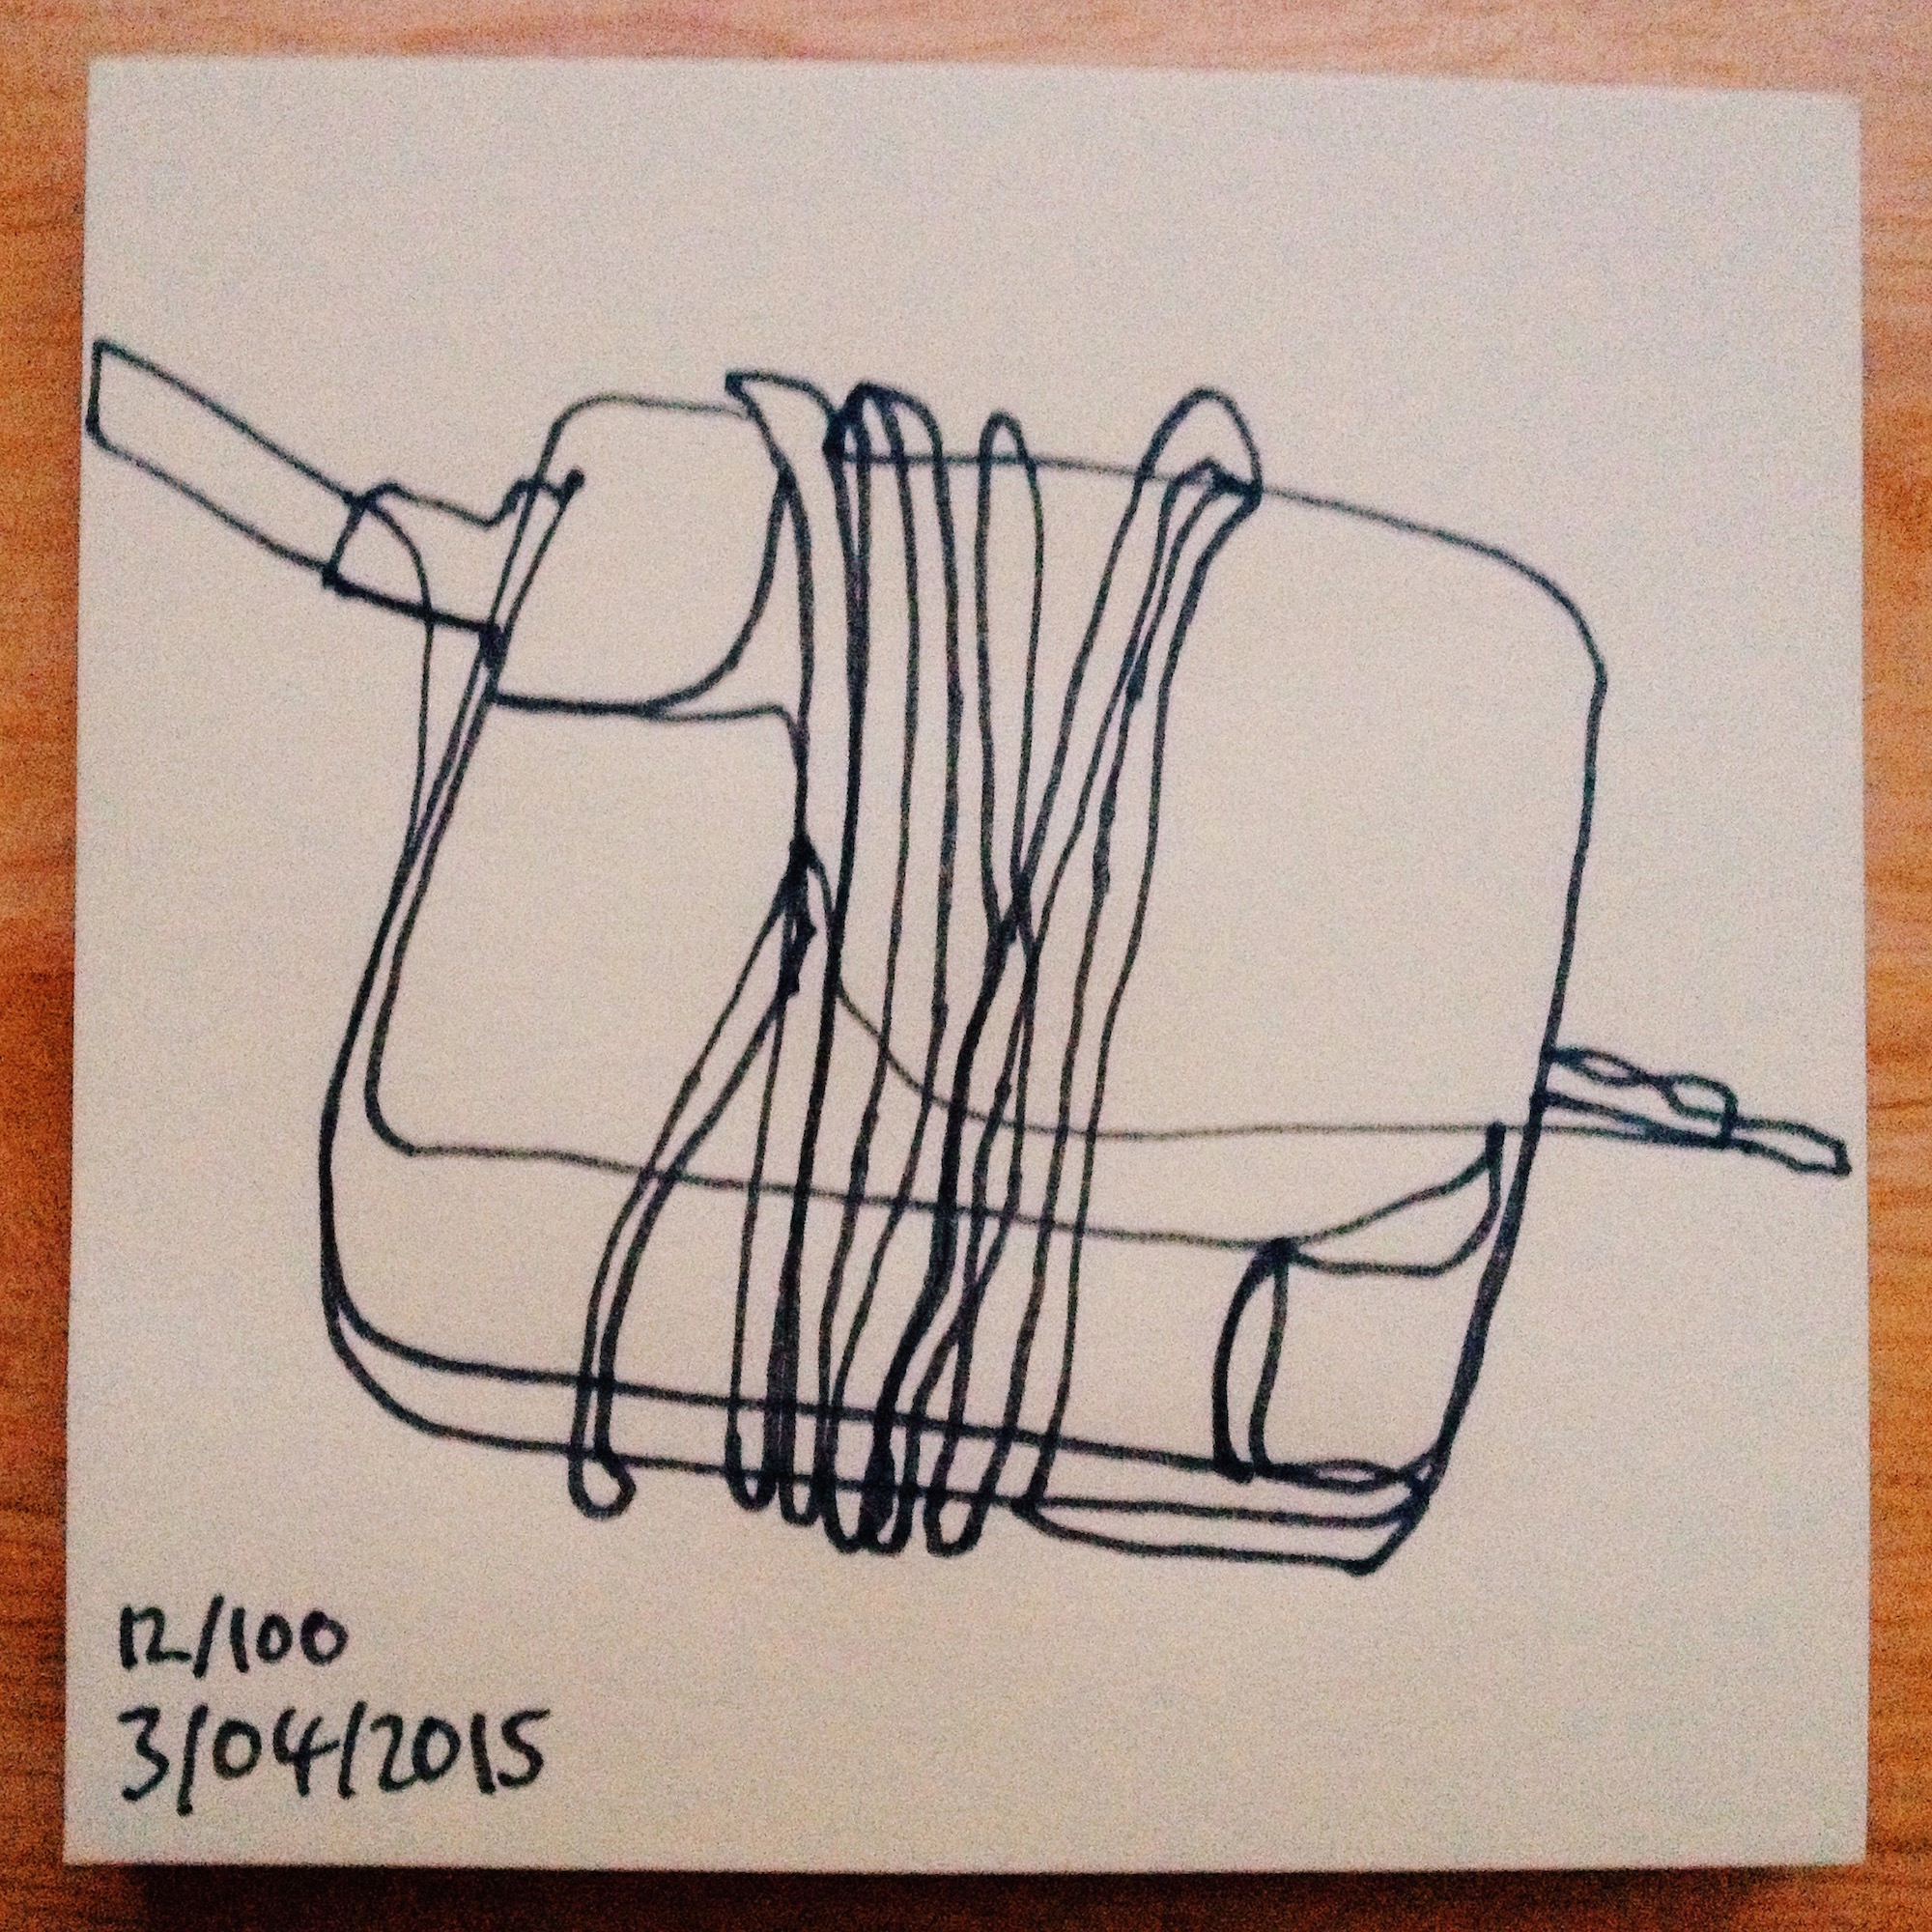 12/100
3/04/2015